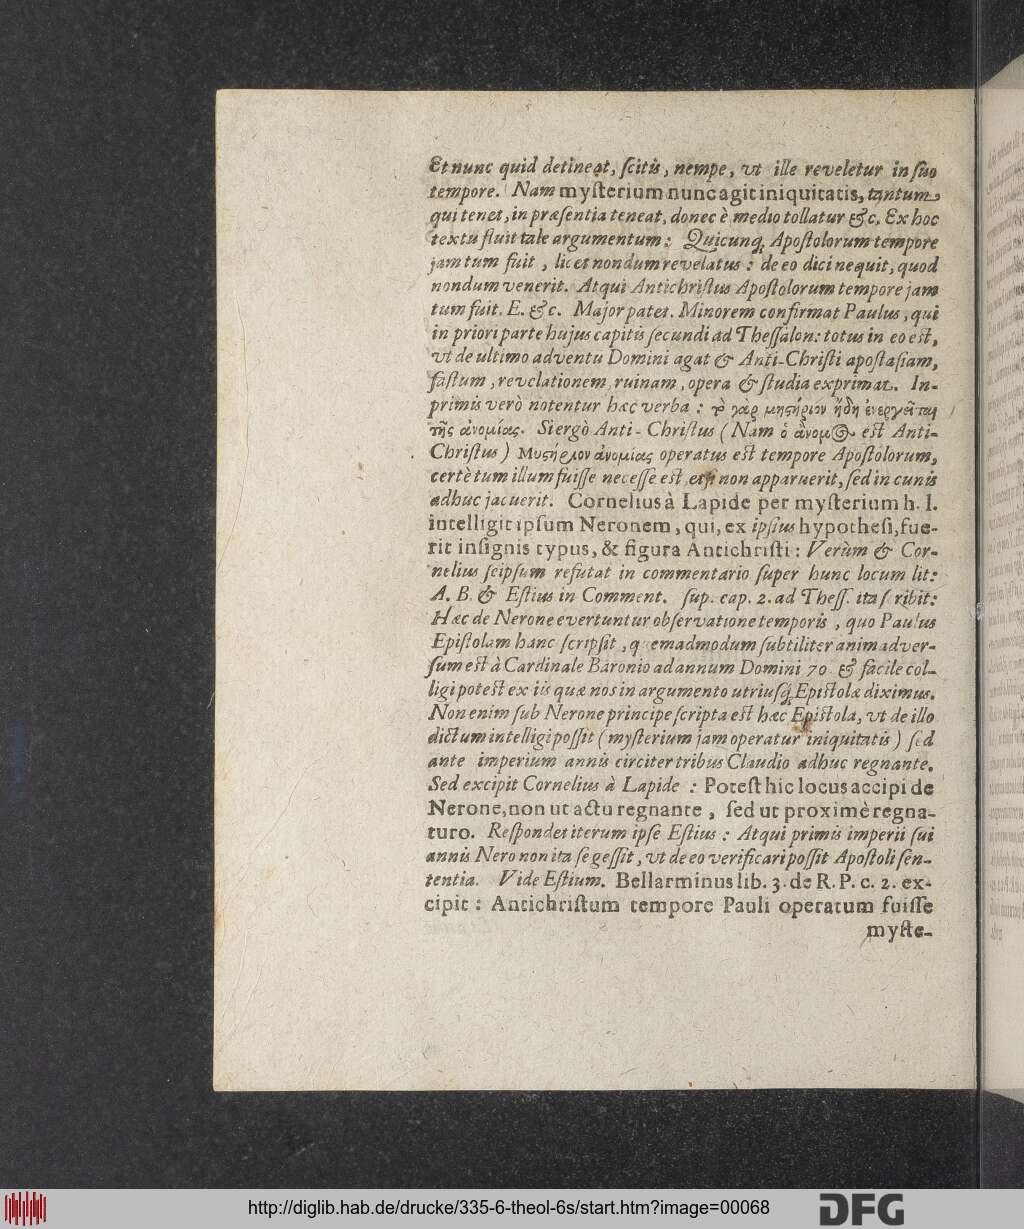 Et nunc quid detineat, ſcitis, nempe, vt ille reveletur in ſuo
tempore. Nam myſterium nunc agit iniquitatis, tantum
qui tenet, in præſentia teneat, donec è medio tollatur &c. Ex hoc
textu fluit tale argumentum: Quicunq; Apoſtolorum tempore
jam tum fuit, licet nondum revelatus: de eo dici nequit, quod
nondum venerit. Atqui Antichriſtus Apoſtolorum tempore jam
tum fuit. E. &c. Major patet. Minorem confirmat Paulus, qui
in priori parte hujus capitis ſecundi ad Theſſalon: totus in eo eſt,
vt de ultimo adventu Domini agat & Anti-Chriſti apoſtaſiam,
faſtum, revelationem, ruinam, opera & ſtudia exprimat. In-
primis verò notentur hæc verba: τὸ γὰρ μυϛήριον ἤδη ἐνεργεῖται
τῆς ἀνομίας. Si ergò Anti-Chriſtus (Nam ὁ ἄνομος eſt Anti-
Chriſtus) Μυϛήριον ἀνομίας operatus eſt tempore Apoſtolorum,
certè tum illum fuiſſe neceſſe eſt, etſi non apparuerit, ſed in cunis
adhuc jacuerit. Cornelius à Lapide per myſterium h. l.
intelligit ipſum Neronem, qui, ex ipſius hypotheſi, fue-
rit inſignis typus, & figura Antichriſti: Verùm & Cor-
nelius ſeipſum refutat in commentario ſuper hunc locum lit:
A. B. & Eſtius in Comment. ſup. cap. 2. ad Theſſ. ita ſcribit:
Hæc de Nerone evertuntur obſervatione temporis, quo Paulus
Epiſtolam hanc ſcripſit, quemadmodum ſubtiliter animadver-
ſum eſt à Cardinale Baronio ad annum Domini 70 & facile col-
ligi poteſt ex iis quæ nos in argumento utriuſq; Epiſtolæ diximus.
Non enim ſub Nerone principe ſcripta eſt hæc Epiſtola, vt de illo
dictum intelligi poſſit (myſterium jam operatur iniquitatis) ſed
ante imperium annis circiter tribus Claudio adhuc regnante.
Sed excipit Cornelius à Lapide: Poteſt hic locus accipi de
Nerone, non ut actu regnante, ſed ut proximè regna-
turo. Reſpondet iterum ipſe Eſtius: Atqui primis imperii ſui
annis Nero non ita ſe geſſit, vt de eo verificari poſſit Apoſtoli ſen-
tentia. Vide Eſtium. Bellarminus lib. 3. de R. P. c. 2. ex-
cipit: Antichriſtum tempore Pauli operatum fuiſſe
myſte-
http://diglib.hab.de/drucke/335-6-theol-6s/start.htm?image=00068
DFG